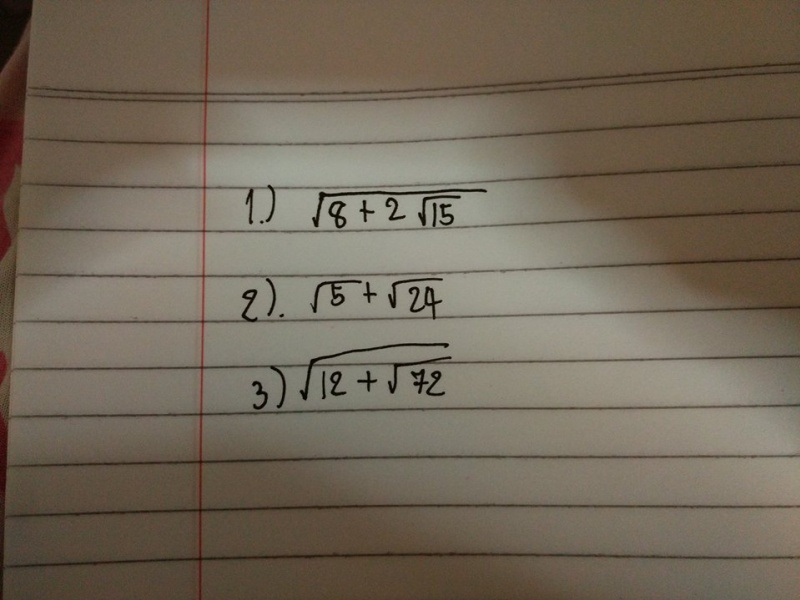 1.) √(8 + 2√15)
2). √5 + √24
3) √(12 + √72)